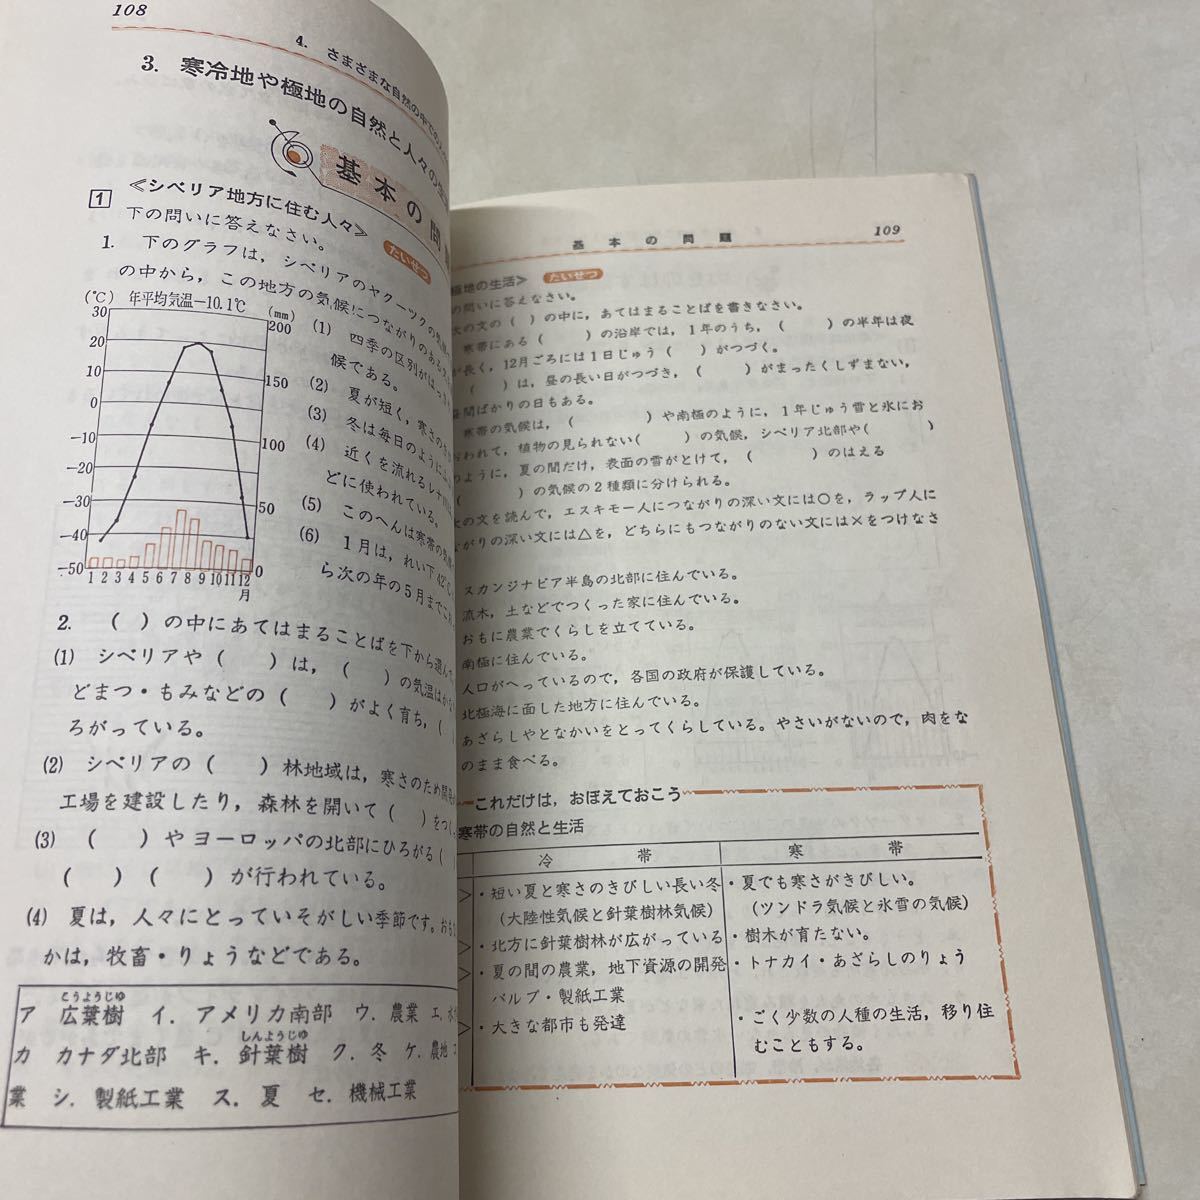 108
4. さまざまな自然の中での
3. 寒冷地や極地の自然と人々の生
基本の問
1
≪シベリア地方に住む人々≫
たいせつ
下の問いに答えなさい。
1. 下のグラフは，シベリアのヤクーツクの気
の中から，この地方の気候につながりのある
(℃)
年平均気温−10.1℃
(mm)
30
20
10
0
−10
−20
−30
−40
−50
200
150
100
50
0
1 2 3 4 5 6 7 8 9 10 11 12
月
(1) 四季の区別がはっき
候である。
(2) 夏が短く，寒さの
(3) 冬は毎日のように
(4) 近くを流れるレナ川
どに使われている。
(5) このへんは寒帯の気
(6) 1月は，れい下42℃
ら次の年の5月まで
2. （ ）の中にあてはまることばを下から選ん
(1) シベリアや（ ）は，（ ）の気温はか
どまつ・もみなどの（ ）がよく育ち，（
ろがっている。
(2) シベリアの（ ）林地域は，寒さのため開発
工場を建設したり，森林を開いて（ ）をつ
(3) （ ）やヨーロッパの北部にひろがる（
（ ）（ ）が行われている。
(4) 夏は，人々にとっていそがしい季節です。お
かは，牧畜・りょうなどである。
こうようじゆ
ア 広葉樹 イ．アメリカ南部 ウ．農業 エ．
しんようじゆ
カ カナダ北部 キ．針葉樹 ク．冬 ケ．農地
業 シ．製紙工業 ス．夏 セ．機械工業
基本の問題
109
極地の生活≫ たいせつ
の問いに答えなさい。
の文の（ ）の中に，あてはまることばを書きなさい。
寒帯にある（ ）の沿岸では，1年のうち，（ ）の半年は夜
が長く，12月ごろには1日じゅう（ ）がつづく。
（ ）は，昼の長い日がつづき，（ ）がまったくしずまない，
昼間ばかりの日もある。
寒帯の気候は，（ ）や南極のように，1年じゅう雪と氷にお
おわれて，植物の見られない（ ）の気候，シベリア北部や（ ）
のように，夏の間だけ，表面の雪がとけて，（ ）のはえる
（ ）の気候の2種類に分けられる。
の文を読んで，エスキモー人につながりの深い文には○を，ラップ人に
ながりの深い文には△を，どちらにもつながりのない文には×をつけなさ
スカンジナビア半島の北部に住んでいる。
流木，土などでつくった家に住んでいる。
おもに農業でくらしを立てている。
南極に住んでいる。
人口がへっているので，各国の政府が保護している。
北極海に面した地方に住んでいる。
あざらしやとなかいをとってくらしている。やさいがないので，肉をな
のまま食べる。
これだけは，おぼえておこう
寒帯の自然と生活
冷帯
寒帯
・短い夏と寒さのきびしい長い冬
（大陸性気候と針葉樹林気候）
・北方に針葉樹林が広がっている
・夏の間の農業，地下資源の開発
パルプ・製紙工業
・大きな都市も発達
・夏でも寒さがきびしい。
（ツンドラ気候と氷雪の気候）
・樹木が育たない。
・トナカイ・あざらしのりょう
・ごく少数の人種の生活，移り住
むこともする。